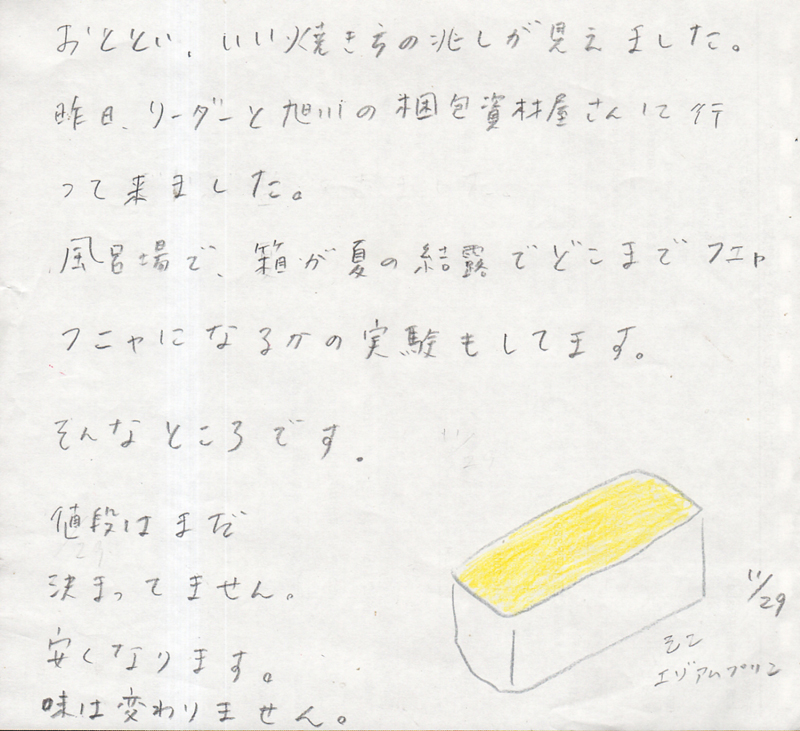 おととい、いい焼き方の兆しが見えました。
昨日、リーダーと旭川の梱包資材屋さんに行
って来ました。
風呂場で、箱が夏の結露でどこまでフニャ
フニャになるかの実験もしてます。
そんなところです.
値段はまだ
決まってません。
安くなります。
味は変わりません。
11/29
エゾアムプリン